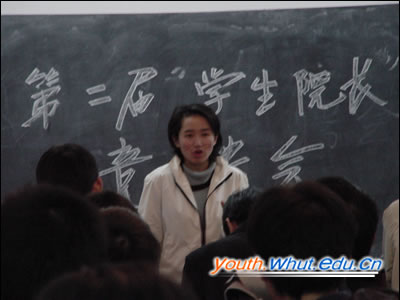 第二届"学生院长"
竞 会
youth.Whut.edu.Cn